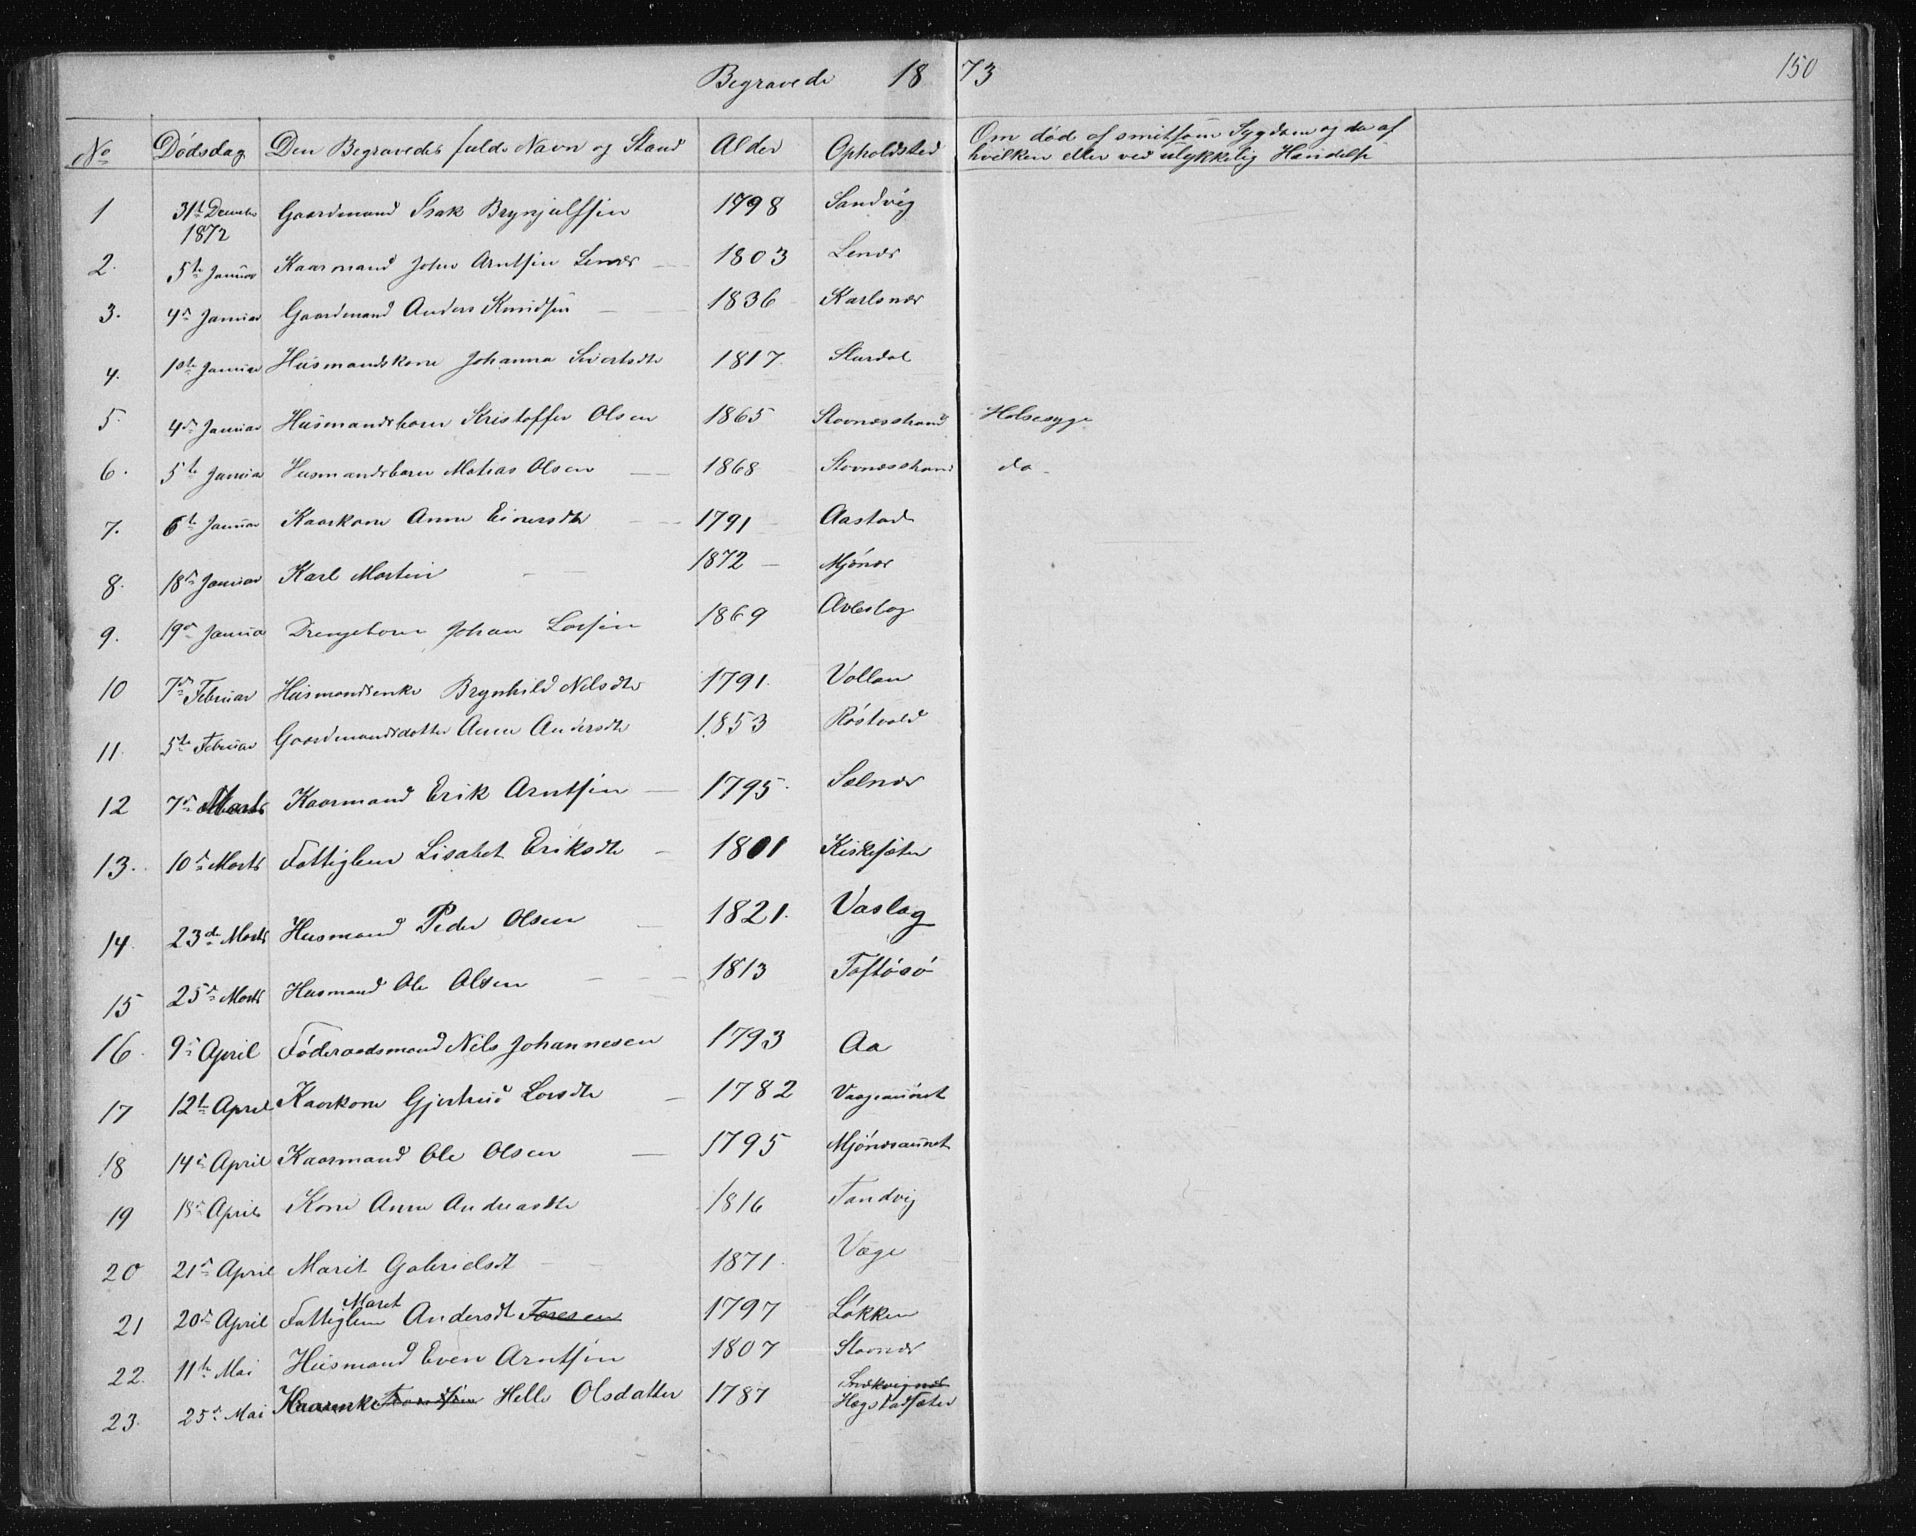 Begravede 1873 150
No Dödsdag Den Begravedes fulde Navn og Stand Alder Opholdsted Om död af smitsom Sygdom og da af
hvilken eller ved ulykkelig Hændelse
1 31te December Gaardmand Isak Brynjulfsen 1798 Sandvig
1872
2. 5te Januar Kaarmand John Arntsen Lenes 1803 Lenes
3. 4de Januar Gaardmand Anders Knudsen 1836 Karlsnes
4. 1ste Januar Husmandskone Johanna Sivertsdtr 1817
5. 4de Januar Husmandsbarn Kristoffer Olsen 1865 Stavnesstrand Halsesyge
6. 5te Januar Husmandsbarn Matias Olsen 1868 Stavnesstrand do
7. 6te Januar Kaarkone Anne Einersdtr 1791 Aastad
8. 18de Januar Karl Martin 1872 Mjönes
9. 19de Januar Drengebarn Johan Larsen 1869
10 7de Februar Husmandsenke Brynhild Nilsdtr 1791. Vollan
11. 5te Februar Gaardmandsdatter Anne Andersdtr 1853 Röstvold
12 7de Marts Kaarmand Erik Arntsen 1795. Selnes
13. 10de Marts Fattiglem Lisabet Eriksdtr 1801 Kiskesæter
14. 23de Marts Husmand Peder Olsen 1821. Vaslag
15 25de Marts Husmand Ole Olsen 1813 Taftösö
16. 9de April Föderaadsmand Nils Johannesen 1793 Aa
17 12te April Kaarkone Gjertrud Larsdtr 1782 Vaageaunet
18 14de April Kaarmand Ole Olsen 1795 Mjönesaunet
19 18de April Kone Anne Andreasdtr 1816 Sandvig
20 21de April Marit Gabrielsdt 1871. Vage
Maret
21 20de April Fattiglem Andersdt Toresen 1797 Lökken
22. 11te Mai Husmand Even Arntsen 1807 Stavnes
23. 25de Mai Kaarenke Helle Olsdatter 1787 Snekvignes
Hægstadsæter